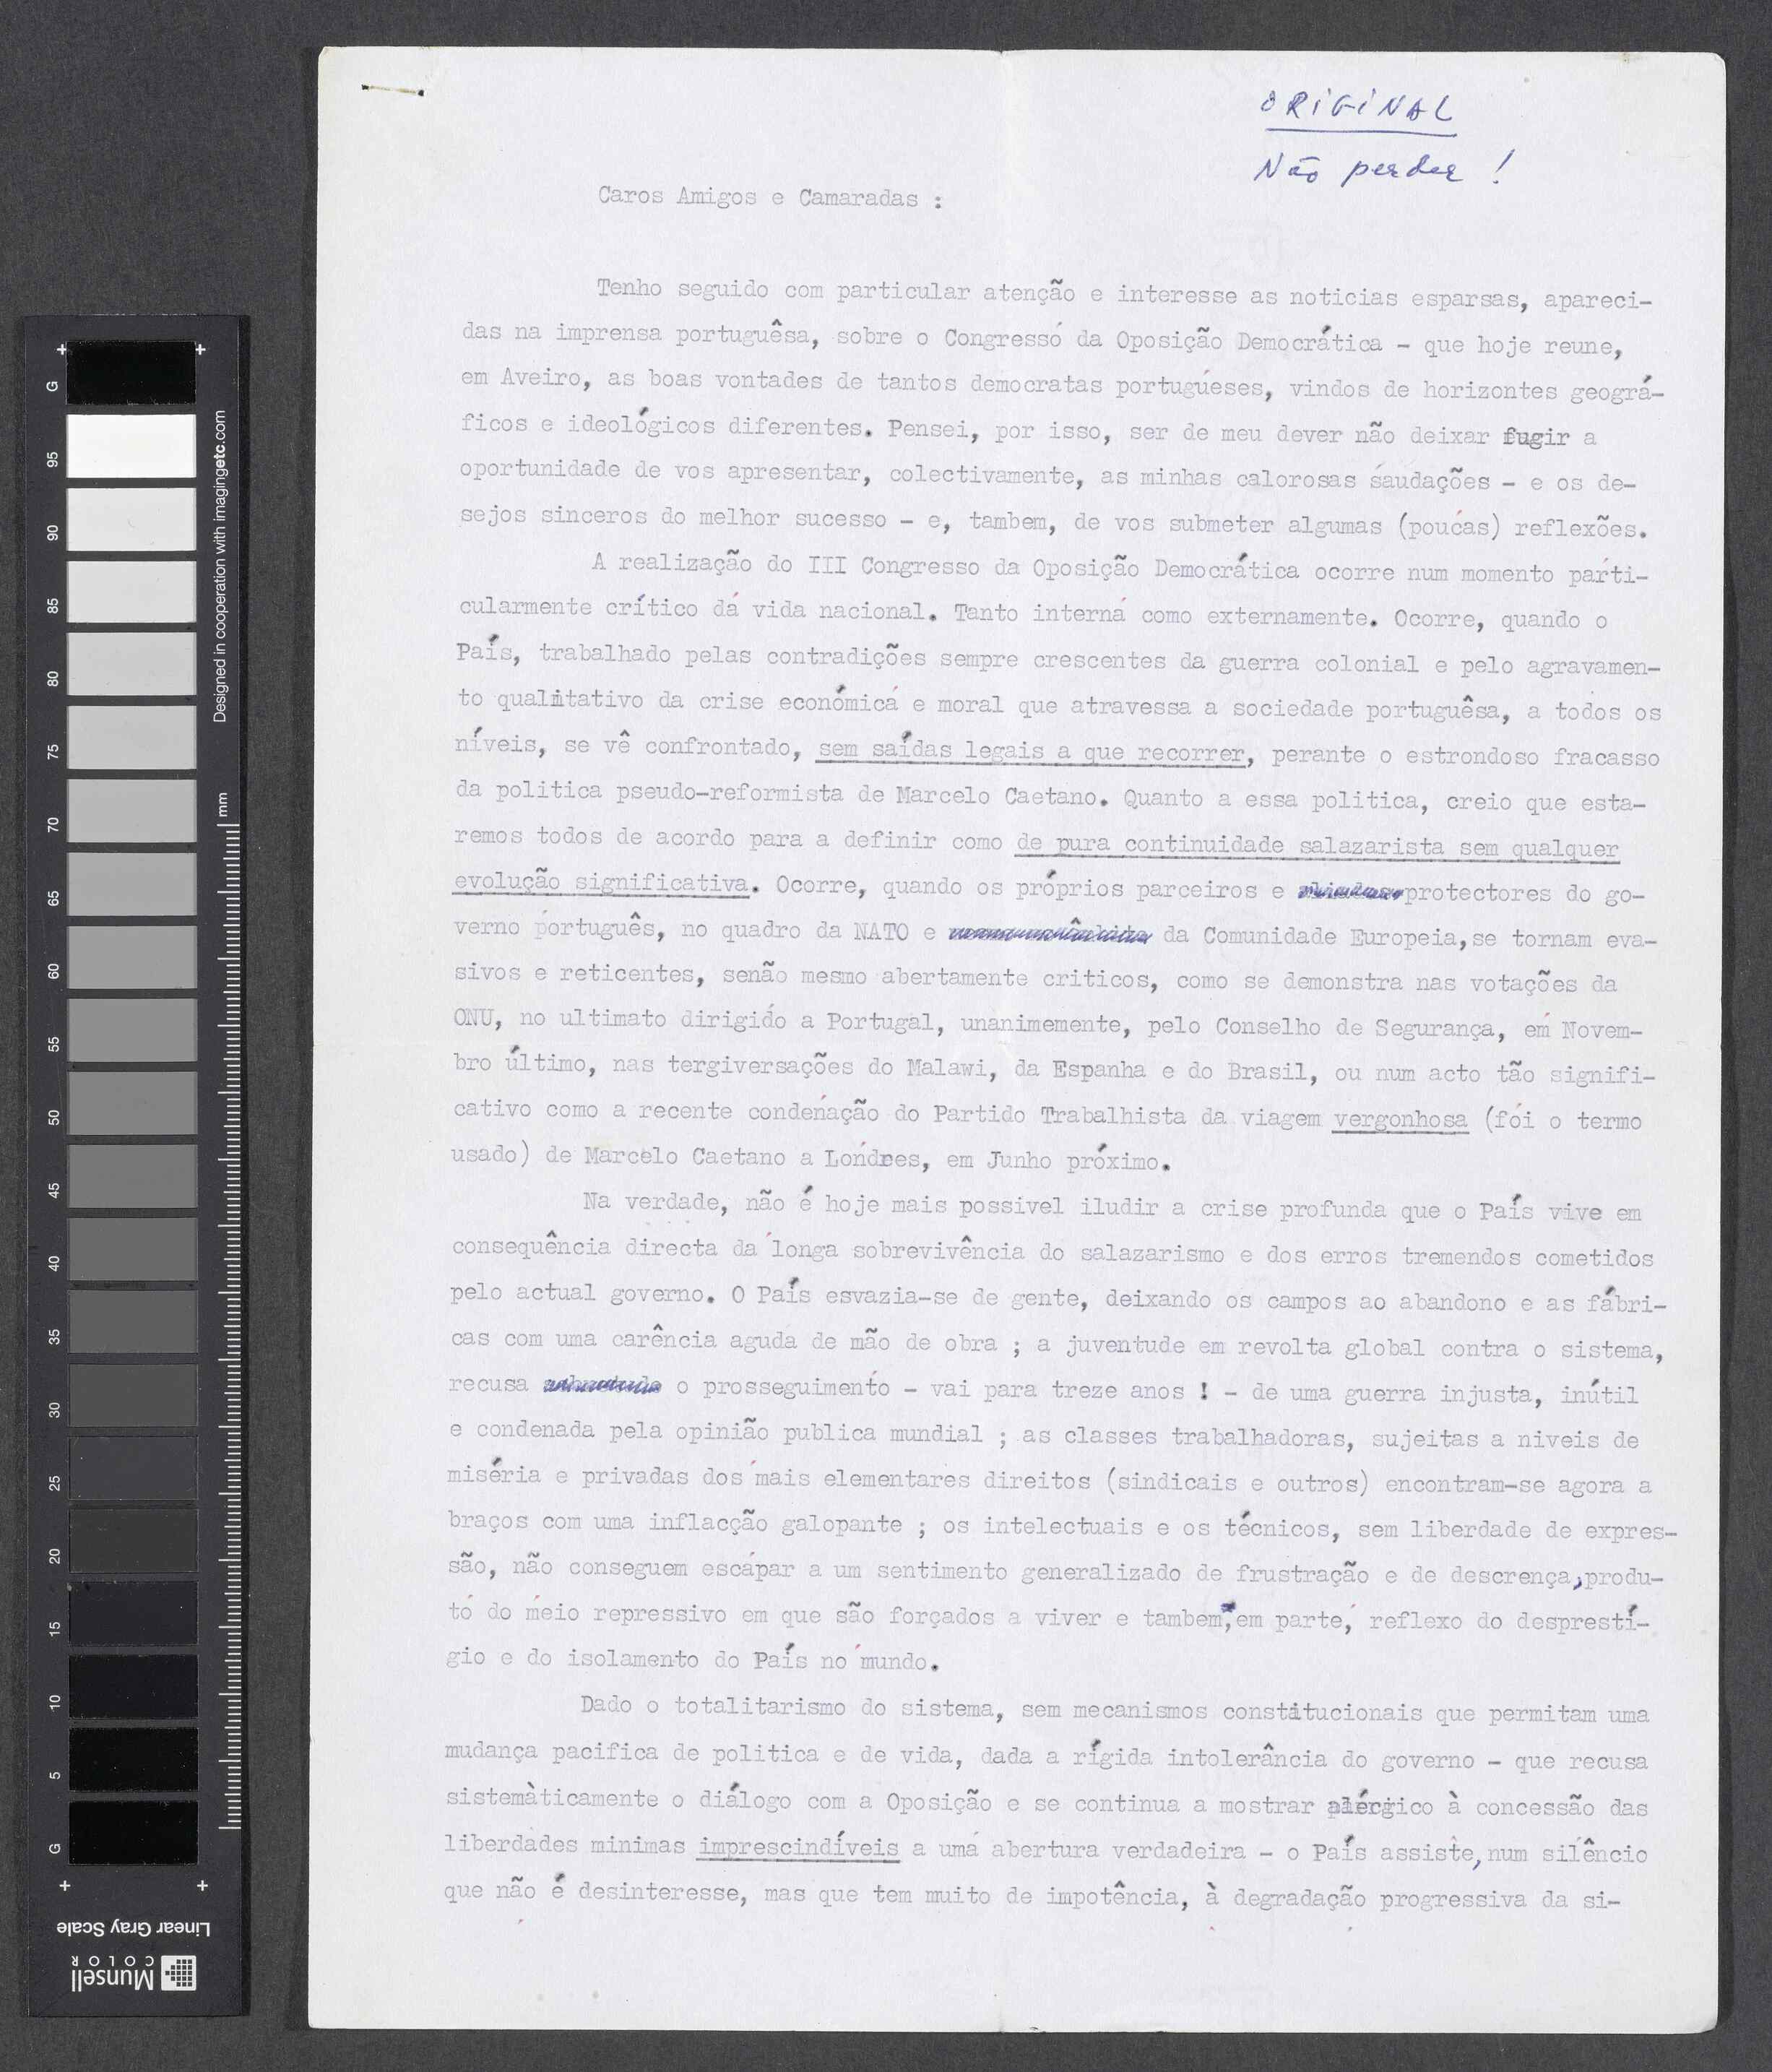 ORIGINAL
Não perder !
Caros Amigos e Camaradas :
Tenho seguido com particular atenção e interesse as noticias esparsas, apareci-
das na imprensa portuguêsa, sobre o Congresso da Oposição Democrática - que hoje reune,
em Aveiro, as boas vontades de tantos democratas portugueses, vindos de horizontes geográ-
ficos e ideológicos diferentes. Pensei, por isso, ser de meu dever não deixar fugir a
oportunidade de vos apresentar, colectivamente, as minhas calorosas saudações - e os de-
sejos sinceros do melhor sucesso - e, tambem, de vos submeter algumas (poucas) reflexões.
A realização do III Congresso da Oposição Democrática ocorre num momento parti-
cularmente crítico da vida nacional. Tanto interna como externamente. Ocorre, quando o
País, trabalhado pelas contradições sempre crescentes da guerra colonial e pelo agravamen-
to qualitativo da crise económica e moral que atravessa a sociedade portuguêsa, a todos os
níveis, se vê confrontado, sem saídas legais a que recorrer, perante o estrondoso fracasso
da politica pseudo-reformista de Marcelo Caetano. Quanto a essa politica, creio que esta-
remos todos de acordo para a definir como de pura continuidade salazarista sem qualquer
evolução significativa. Ocorre, quando os próprios parceiros e protectores do go-
verno português, no quadro da NATO e da Comunidade Europeia,se tornam eva-
sivos e reticentes, senão mesmo abertamente criticos, como se demonstra nas votações da
ONU, no ultimato dirigido a Portugal, unanimemente, pelo Conselho de Segurança, em Novem-
bro último, nas tergiversações do Malawi, da Espanha e do Brasil, ou num acto tão signifi-
cativo como a recente condenação do Partido Trabalhista da viagem vergonhosa (foi o termo
usado) de Marcelo Caetano a Londres, em Junho próximo.
Na verdade, não é hoje mais possivel iludir a crise profunda que o País vive em
consequência directa da longa sobrevivência do salazarismo e dos erros tremendos cometidos
pelo actual governo. O País esvazia-se de gente, deixando os campos ao abandono e as fábri-
cas com uma carência aguda de mão de obra ; a juventude em revolta global contra o sistema,
recusa o prosseguimento - vai para treze anos ! - de uma guerra injusta, inútil
e condenada pela opinião publica mundial ; as classes trabalhadoras, sujeitas a niveis de
miséria e privadas dos mais elementares direitos (sindicais e outros) encontram-se agora a
braços com uma inflacção galopante ; os intelectuais e os técnicos, sem liberdade de expres-
são, não conseguem escapar a um sentimento generalizado de frustração e de descrença,produ-
to do meio repressivo em que são forçados a viver e tambem,em parte, reflexo do desprestí-
gio e do isolamento do País no mundo.
Dado o totalitarismo do sistema, sem mecanismos constitucionais que permitam uma
mudança pacifica de politica e de vida, dada a rígida intolerância do governo - que recusa
sistemàticamente o diálogo com a Oposição e se continua a mostrar alérgico à concessão das
liberdades minimas imprescindíveis a uma abertura verdadeira - o País assiste,num silêncio
que não é desinteresse, mas que tem muito de impotência, à degradação progressiva da si-
G 95 90 85 80 75 70 65 60 55 50 45 40 35 30 25 20 15 10 5 G
Designed in cooperation with imagingetc.com
mm
Linear Gray Scale
Munsell
COLOR